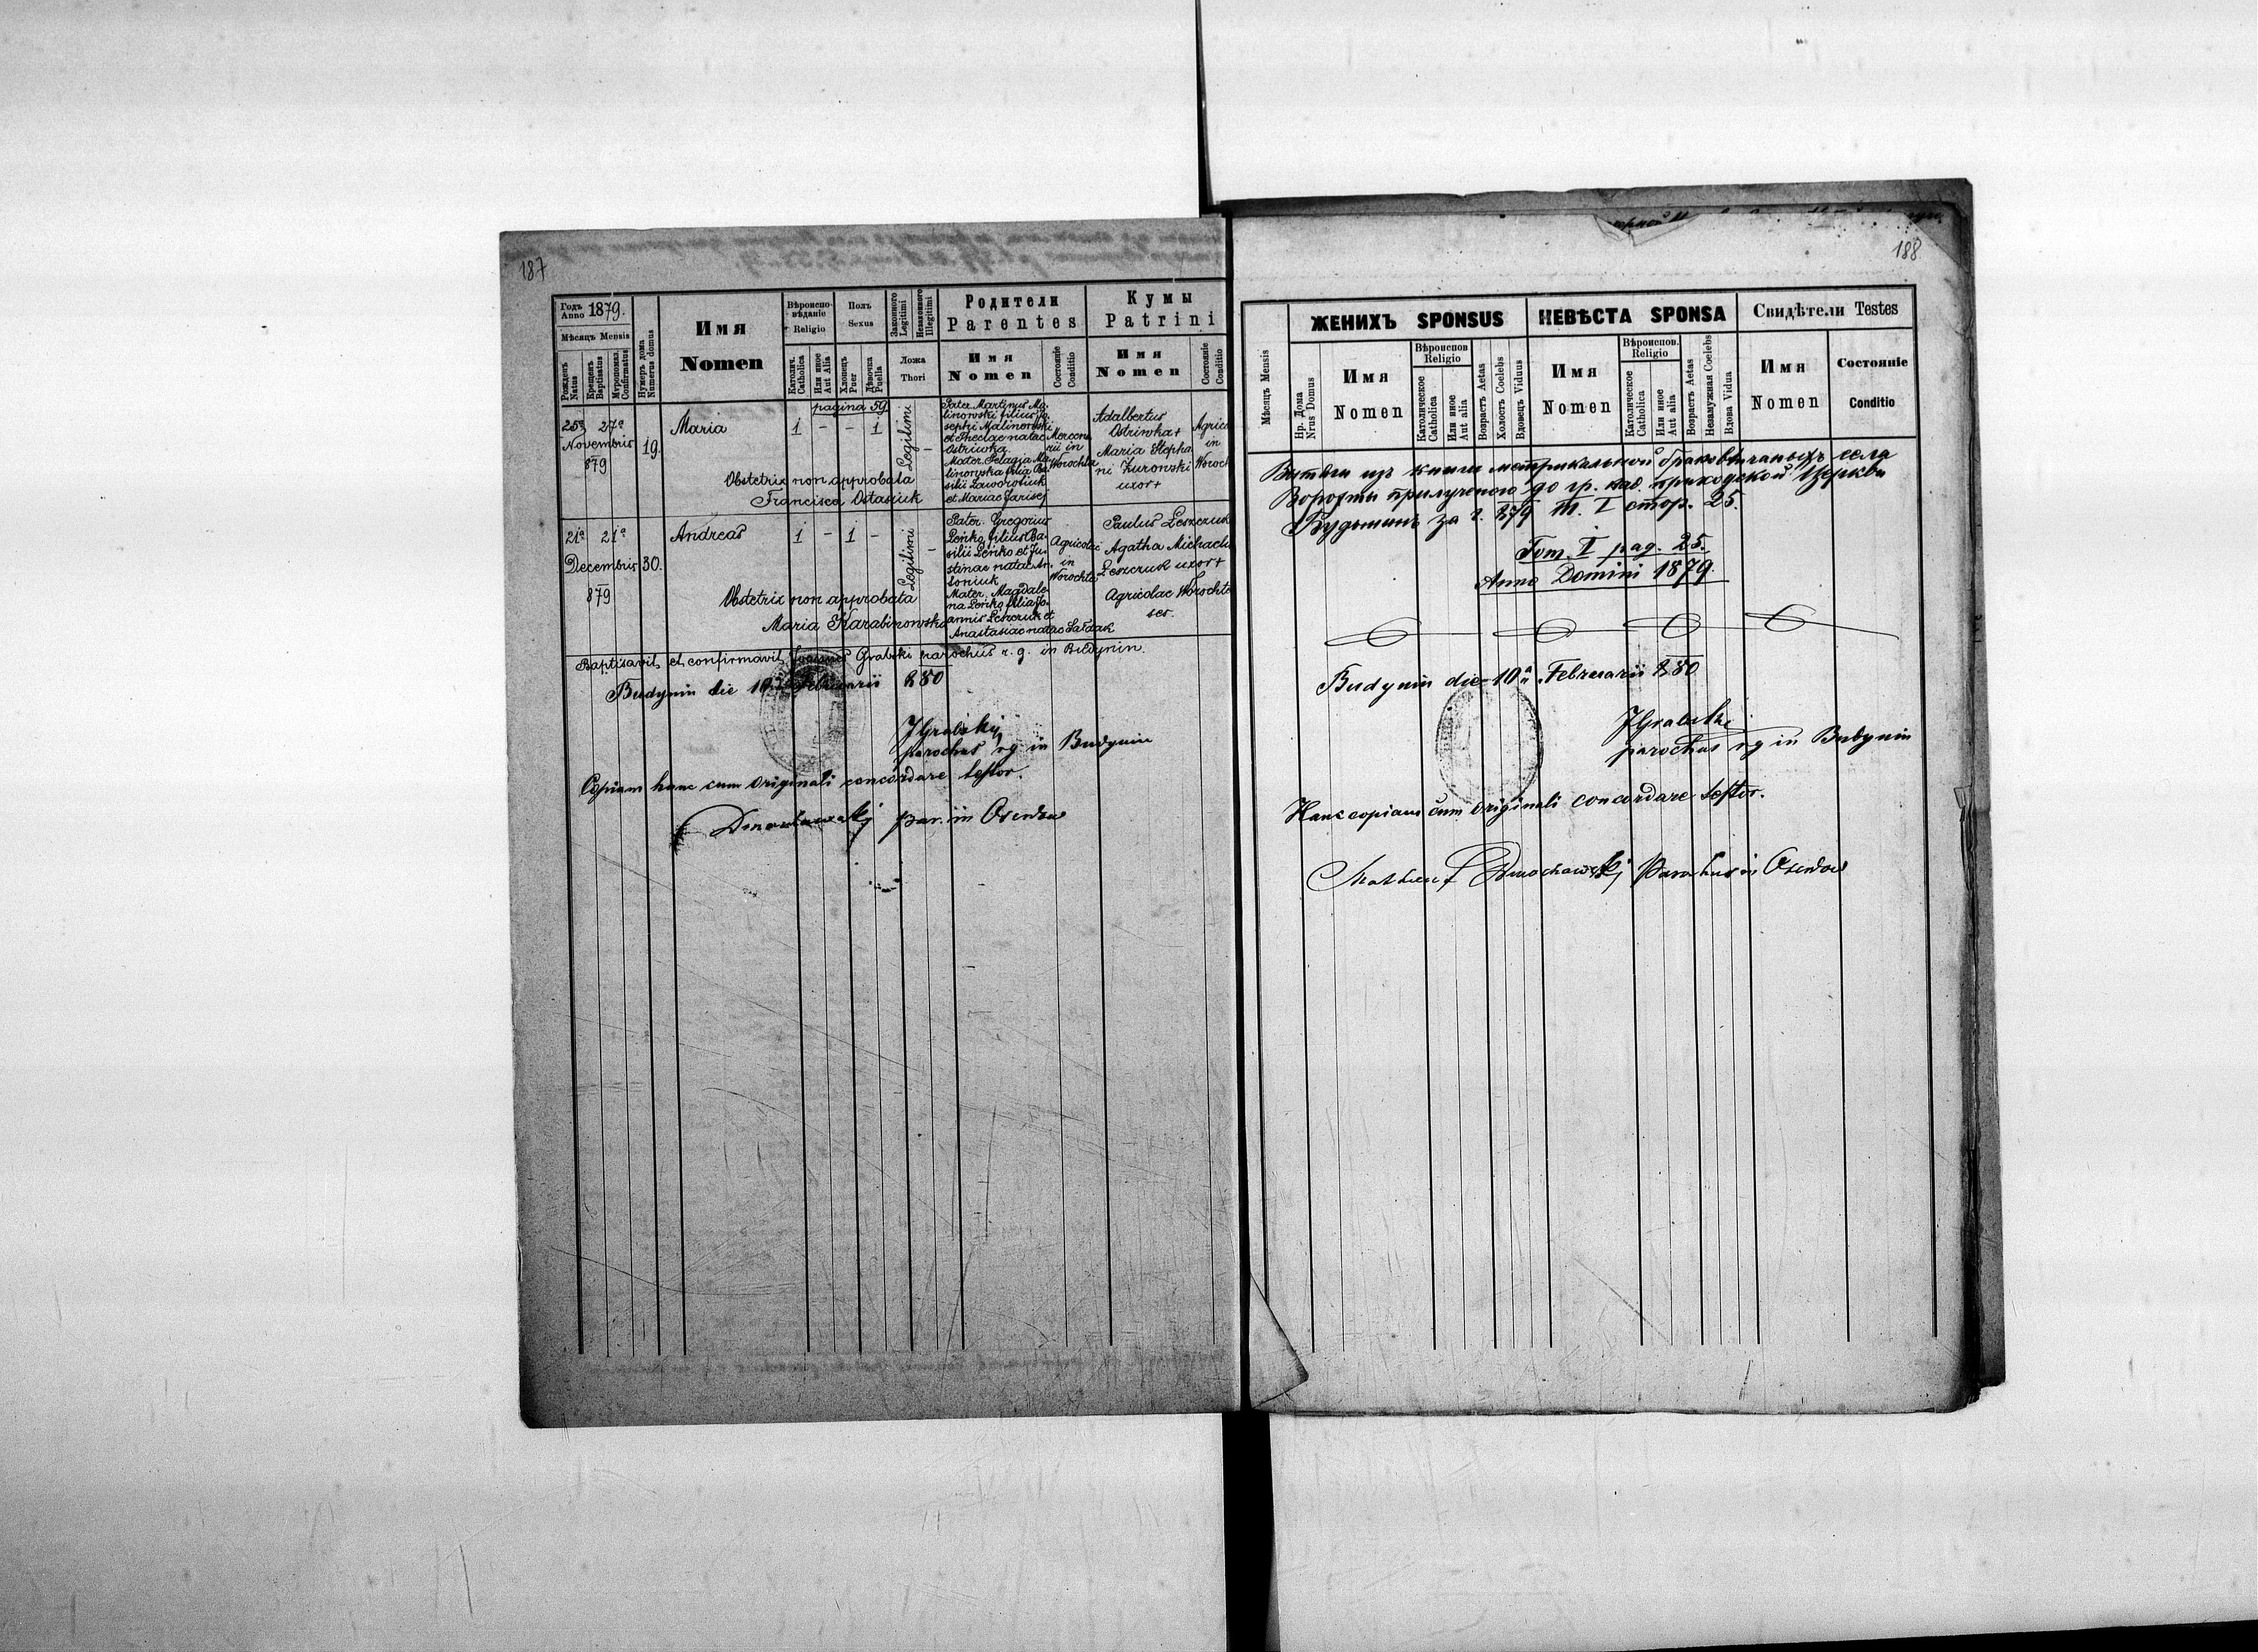 187
Годъ Anno 1879.
Мѣсяцъ Mensis
Рожденъ Natus
Крещенъ Baptisatus
Мѵропомаз. Confirmatus
Нумеръ дома Numerus domus
Имя
Nomen
Вѣроиспо-
вѣданіе
Religio
Католич. Catholica
Или иное Aut Alia
Полъ
Sexus
Хлопецъ Puer
Дѣвочка Puella
Законного Legitimi
Незаконного Illegitimi
Ложа
Thori
Родители
Parentes
Имя
Nomen
Состояніе
Conditio
Кумы
Patrini
Имя
Nomen
Состояніе
Conditio
pagina 59
25ª 27ª
Novembris
879
19.
Maria
1 - - 1
Legitimi
-
Obstetrix non approbata
Francisca Ostasiuk
Pater Martinus Ma-
linowski filius Jo-
sephi Malinowski
et Theclae natae
Ostriwka.
Mater Pelagia Ma-
linowska filia Ba-
silii Laworoliuk
et Mariae Jarisej
Mercena-
rii in
Worochta
Adalbertus
Ostriwka +
Maria Stepha
ni Zurowski
uxor +
Agrico
in
Woroch
21ª 21ª
Decembris
879
30.
Andreas
1 - 1 -
Legitimi
-
Obstetrix non approbata
Maria Karabinowska
Pater. Gregorius
Leńko filius Ba-
silii Leńko et Ju-
stinae natae An-
toniuk
Mater. Magdale-
na Leńko filia Jo-
annis Leszczuk et
Anastasiae natae Saldak
Agricolae
in
Worochta
Paulus Leszczuk
Agatha Michaelis
Leszczuk uxor +
Agricolae Worochte
ses.
Baptisavit et confirmavit Joannes Grabski parochus r. g. in Budynin.
Budynin die 10ª Februarii 880
JGrabskij
parochus rg in Budynin
Copiam hanc cum originali concordare testor.
Dmochowskij par. in Oserdow
188
Мѣсяцъ Mensis
Нр. Дома
Nrus Domus
ЖЕНИХЪ SPONSUS
Имя
Nomen
Вѣроиспов
Religio
Католическое
Catholica
Или иное
Aut alia
Возрастъ Aetas
Холостъ Coelebs
Вдовецъ Viduus
НЕВѢСТА SPONSA
Имя
Nomen
Вѣроиспов.
Religio
Католическое
Catholica
Или иное
Aut alia
Возрастъ Aetas
Незамужная Coelebs
Вдова Vidua
Свидѣтели Testes
Имя
Nomen
Состояніе
Conditio
Вытяги изъ книги метрикальной браковѣнчаныхъ села
Ворохты прилученого до гр. кат. приходской Церкви
Будынинъ за г. 879 Т. I стор. 25.
Tom. I pag. 25.
Anno Domini 1879.
Budynin die 10ª Februarii 880
JGrabski
parochus rg in Budynin
Hanc copiam cum originali concordare testor.
Dmochowskij Parochus in Oserdow